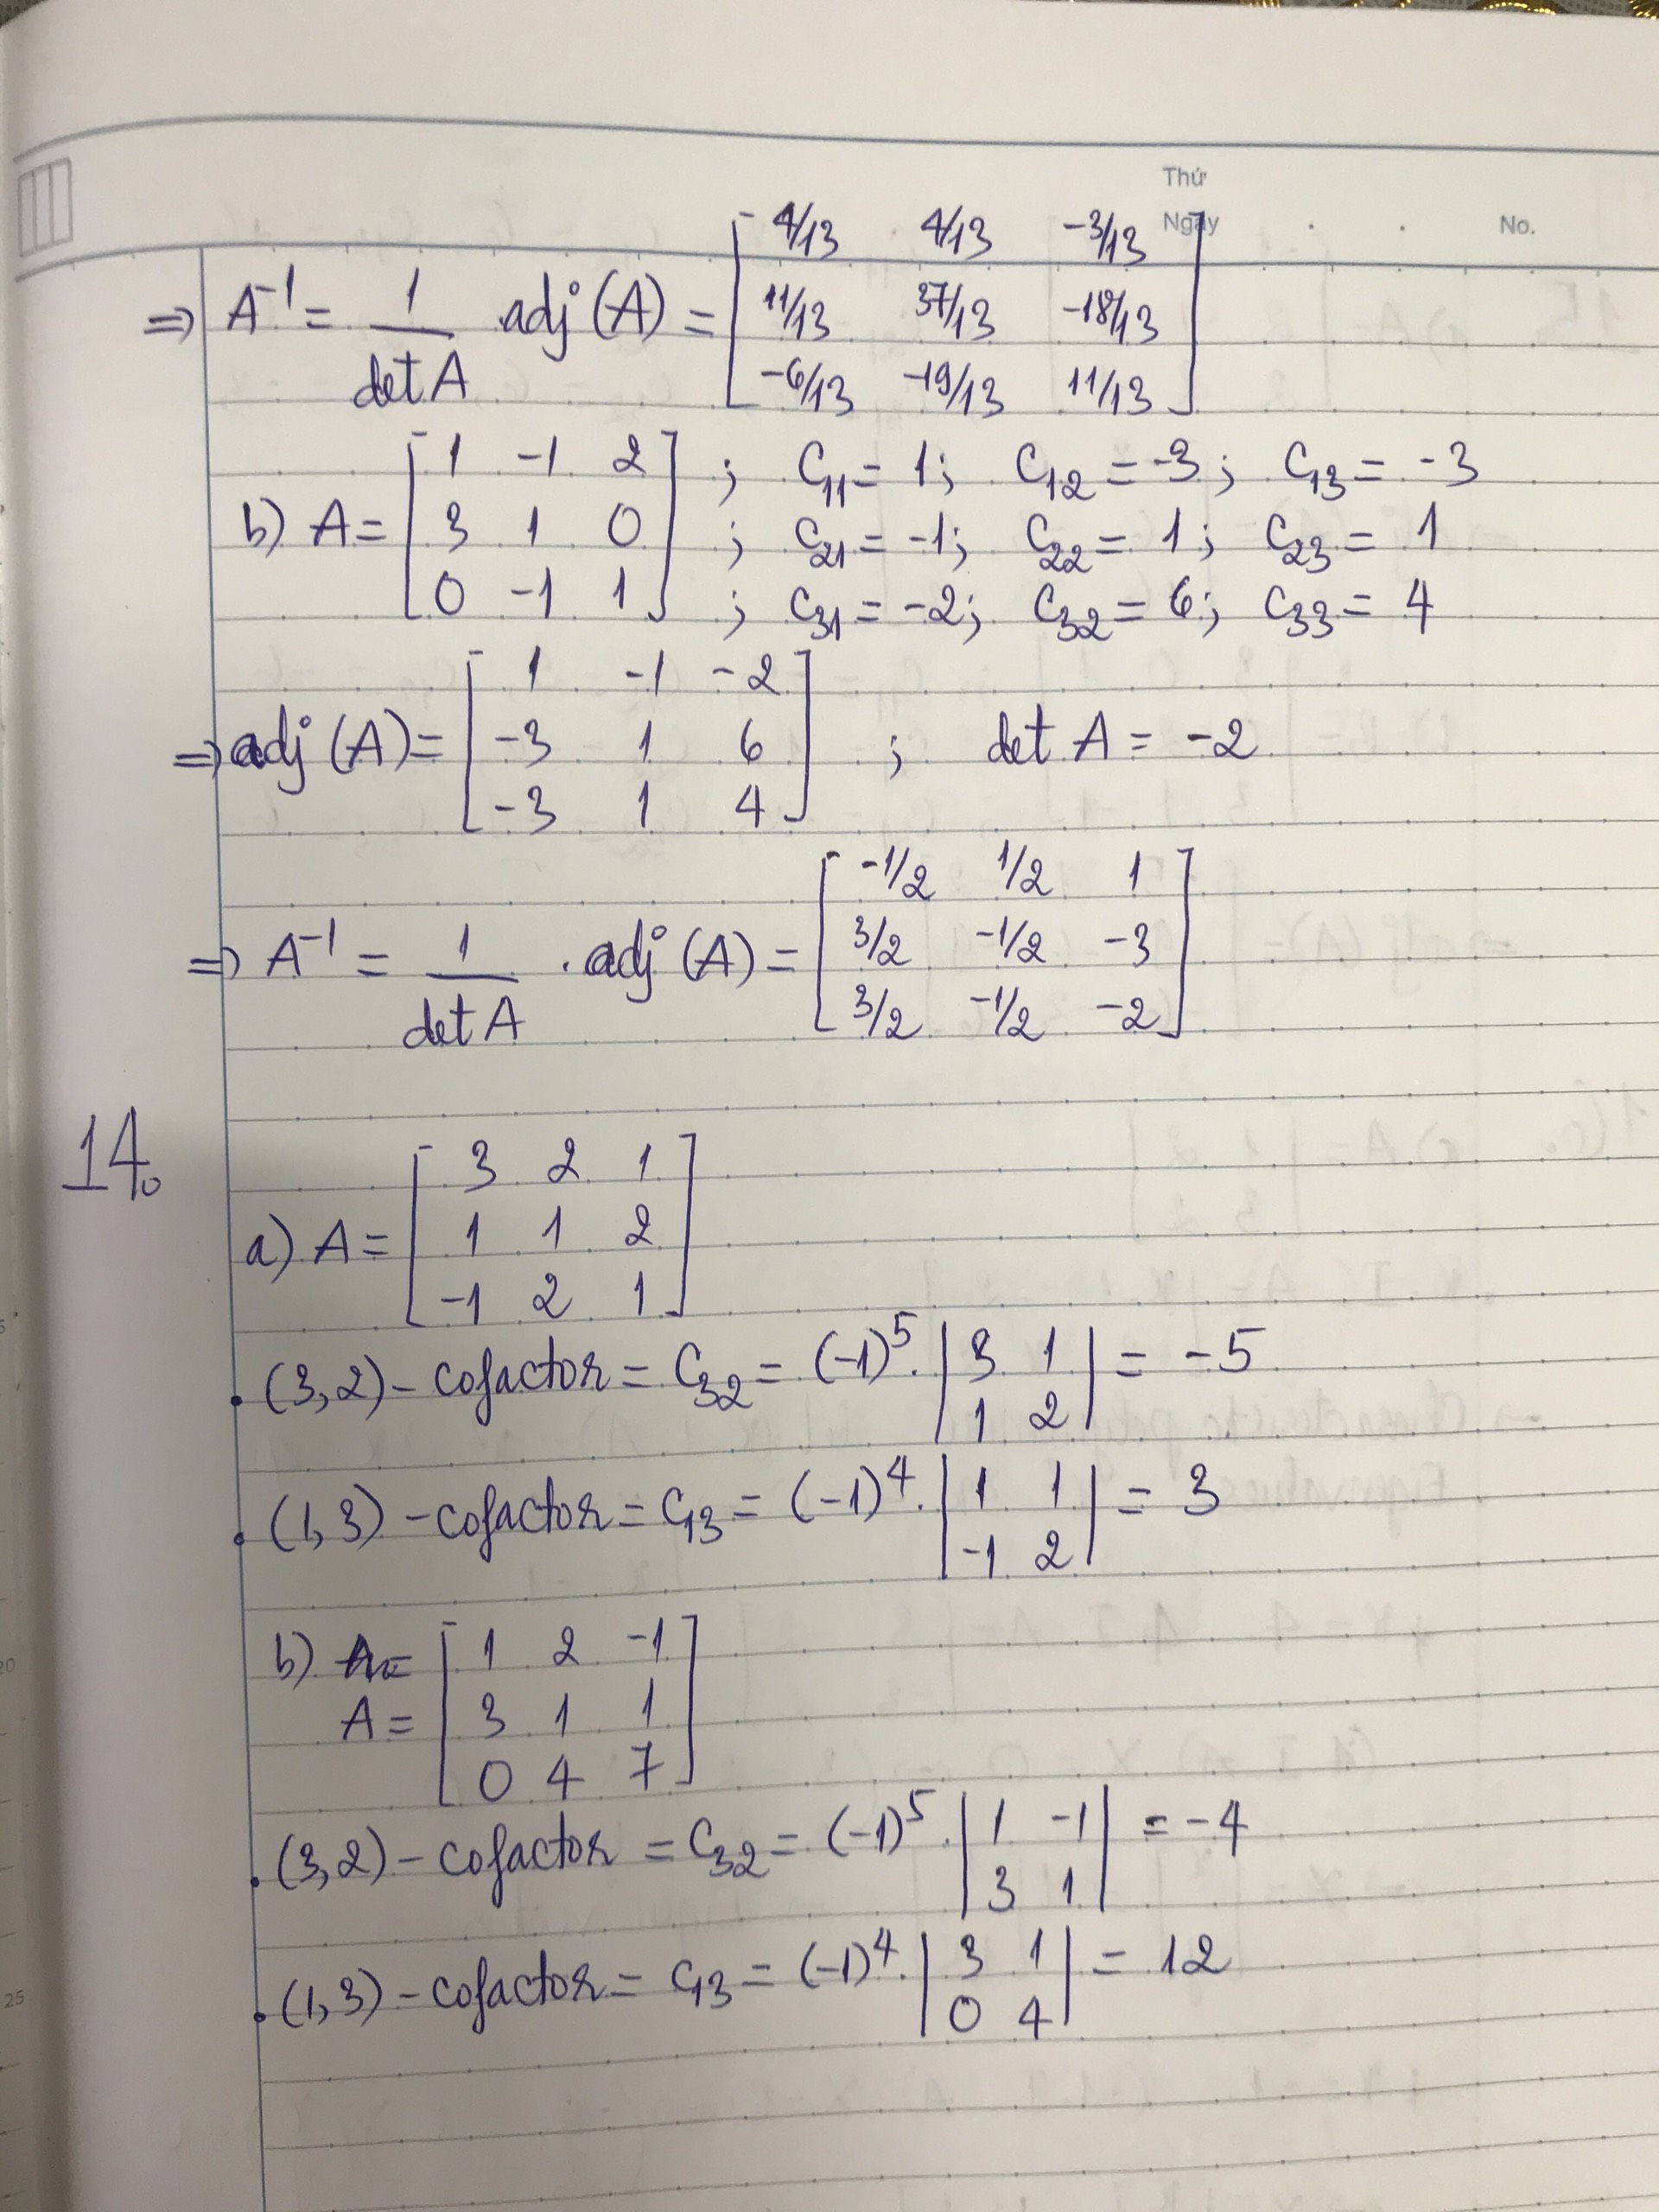 Thứ
Ngày . . No.
⇒ A⁻¹ = 1/det A adj(A) = [4/13 4/13 -3/13
11/13 37/13 -18/13
-6/13 -19/13 11/13]
b) A = [1 -1 2 ; C₁₁ = 1; C₁₂ = -3; C₁₃ = -3
3 1 0 ; C₂₁ = -1; C₂₂ = 1; C₂₃ = 1
0 -1 1] ; C₃₁ = -2; C₃₂ = 6; C₃₃ = 4
⇒ adj(A) = [1 -1 -2
-3 1 6 ; det A = -2
-3 1 4]
⇒ A⁻¹ = 1/det A . adj(A) = [-1/2 1/2 1
3/2 -1/2 -3
3/2 -1/2 -2]
14.
a) A = [3 2 1
1 1 2
-1 2 1]
. (3,2) - cofactor = C₃₂ = (-1)⁵ . |3 1
1 2| = -5
. (1,3) - cofactor = C₁₃ = (-1)⁴ . |1 1
-1 2| = 3
b) A = [1 2 -1
A = 3 1 1
0 4 7]
. (3,2) - cofactor = C₃₂ = (-1)⁵ . |1 -1
3 1| = -4
. (1,3) - cofactor = C₁₃ = (-1)⁴ . |3 1
0 4| = 12
20
25